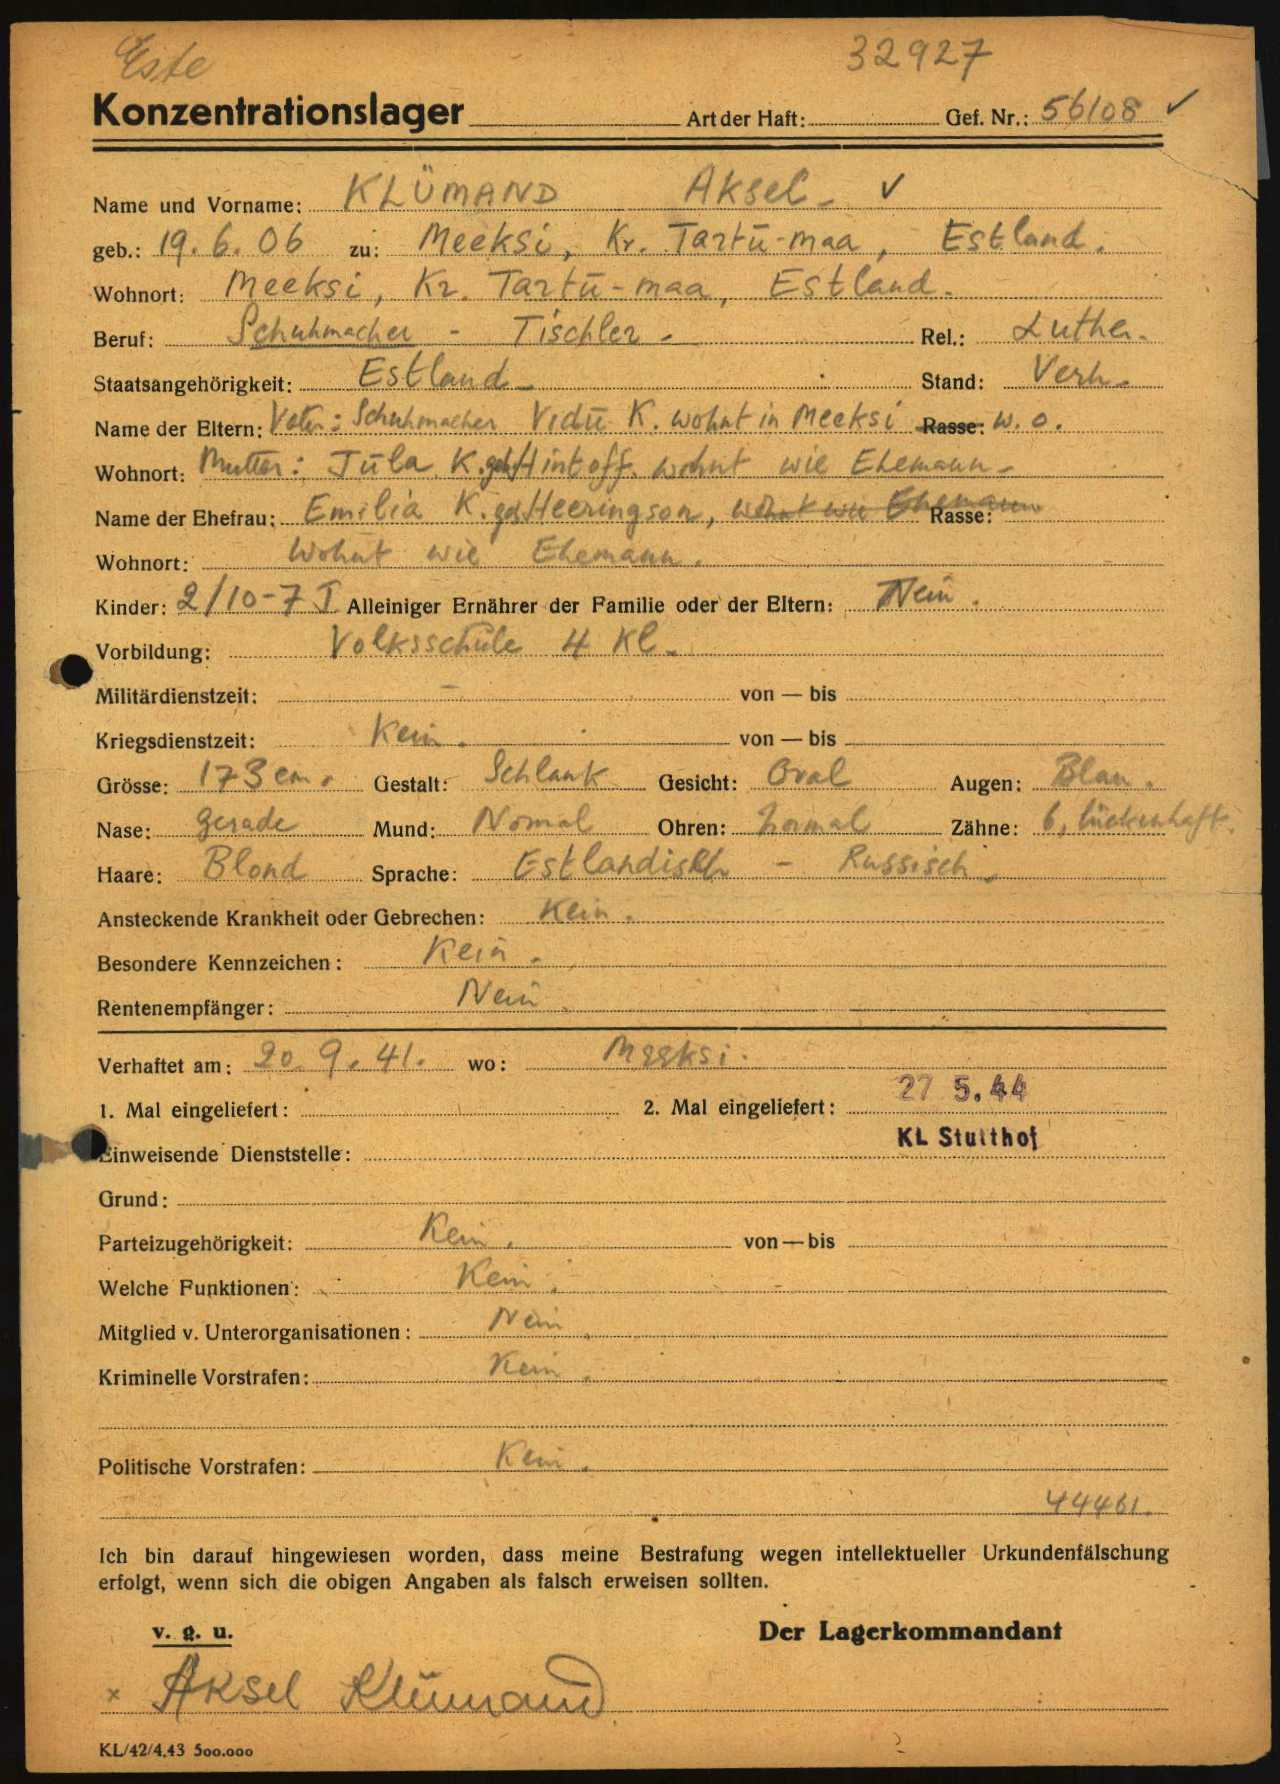 Este 32927
Konzentrationslager Art der Haft: Gef. Nr.: 56108 ✓
Name und Vorname: KLÜMAND Aksel. ✓
geb.: 19. 6. 06 zu: Meeksi, Kr. Tartū-maa, Estland.
Wohnort: Meeksi, Kr. Tartū-maa, Estland.
Beruf: Schuhmacher - Tischler. Rel.: Luther.
Staatsangehörigkeit: Estland Stand: Verh.
Name der Eltern: Vater: Schuhmacher Vidū K. wohnt in Meeksi Rasse: w. o.
Wohnort: Mutter: Jūla K. geb. Hintoff. wohnt wie Ehemann
Name der Ehefrau: Emilia K. geb. Heeringson, wohnt wie Ehemann Rasse:
Wohnort: Wohnt wie Ehemann.
Kinder: 2/10-7 J Alleiniger Ernährer der Familie oder der Eltern: Nein.
Vorbildung: Volksschule 4 Kl.
Militärdienstzeit: — von — bis
Kriegsdienstzeit: Kein. von — bis
Grösse: 173 cm. Gestalt: Schlank Gesicht: Oval Augen: Blau.
Nase: gerade Mund: Nomal Ohren: normal Zähne: 6, lückenhaft.
Haare: Blond Sprache: Estlandisch - Russisch.
Ansteckende Krankheit oder Gebrechen: Kein.
Besondere Kennzeichen: Kein.
Rentenempfänger: Nein.
Verhaftet am: 20. 9. 41. wo: Meeksi.
27 5. 44
1. Mal eingeliefert: 2. Mal eingeliefert:
KL Stutthof
Einweisende Dienststelle:
Grund:
Parteizugehörigkeit: Kein. von — bis
Welche Funktionen: Kein.
Mitglied v. Unterorganisationen: Nein.
Kriminelle Vorstrafen: Kein.
Politische Vorstrafen: Kein.
44461.
Ich bin darauf hingewiesen worden, dass meine Bestrafung wegen intellektueller Urkundenfälschung
erfolgt, wenn sich die obigen Angaben als falsch erweisen sollten.
v. g. u. Der Lagerkommandant
x Aksel Klümand
KL/42/4.43 500.000